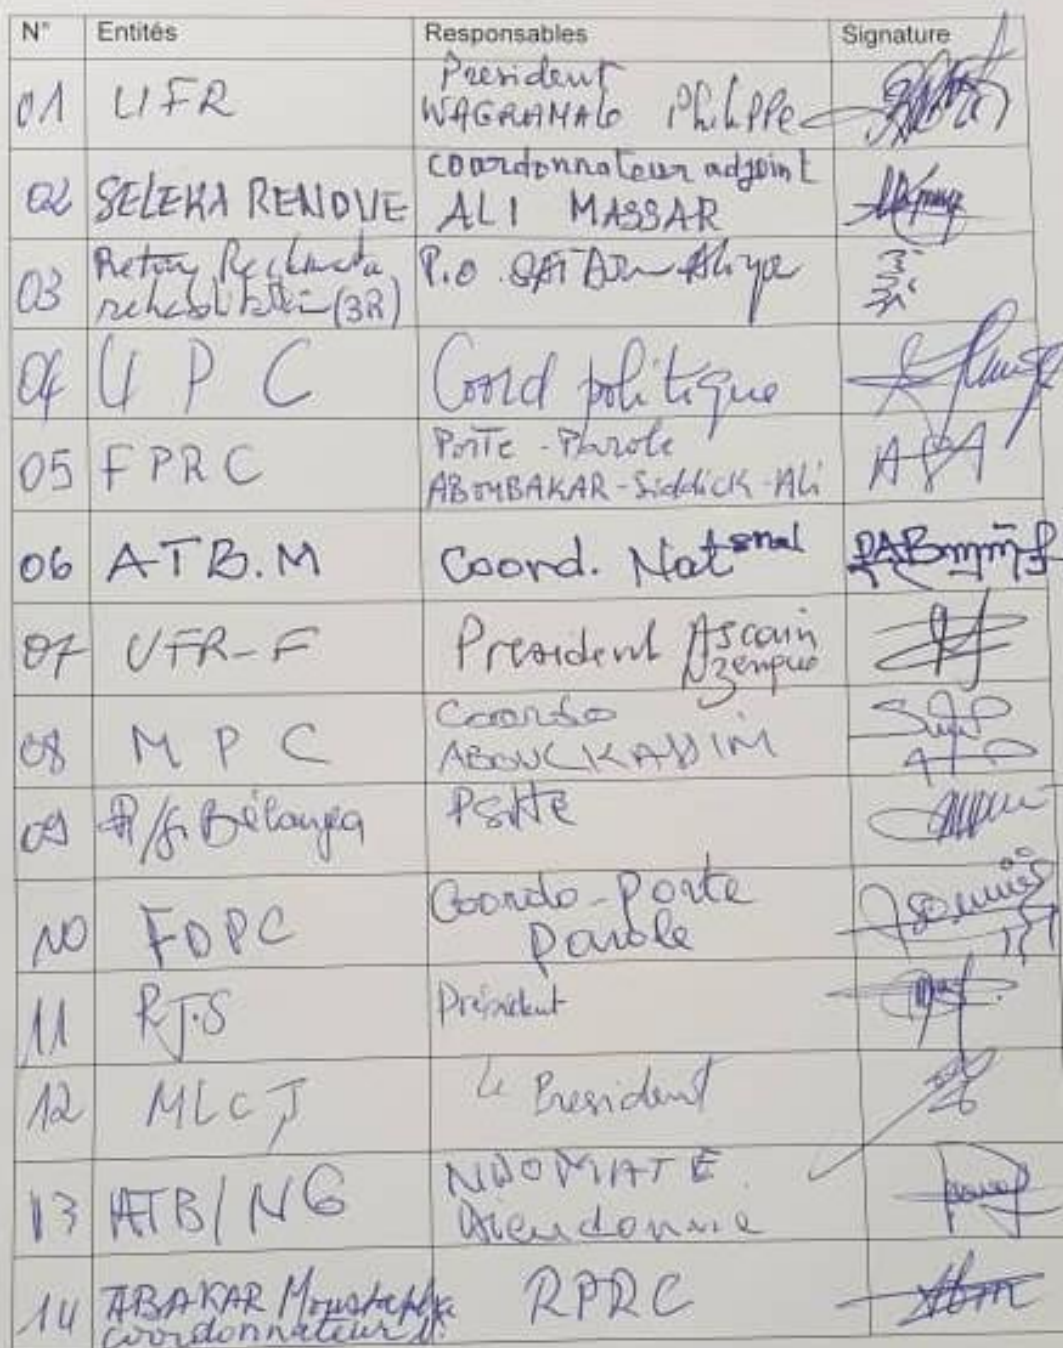 N° Entités Responsables Signature
01 UFR President
WAGRAMALE Philippe
02 SELEKA RENOVE coordonnateur adjoint
ALI MASSAR
03 Retour, Reclamata
rehabilitation (3R) P.O.
04 U P C Coord politique
05 FPRC Porte-Parole
ABOUBAKAR-Siddick-Ali
ASA
06 ATB.M Coord. National
07 UFR-F President Ascain
Nzengue
08 M P C Coordo
ABOULKASSIM
09 R/G. Bélanga PSHTE
10 FDPC Coordo-porte
parole
11 RJ.S Président
12 MLCJ Le President
13 ATB/NG NDOMATE
Dieudonnie
14 ABAKAR Moustapha
coordonnateur RPRC